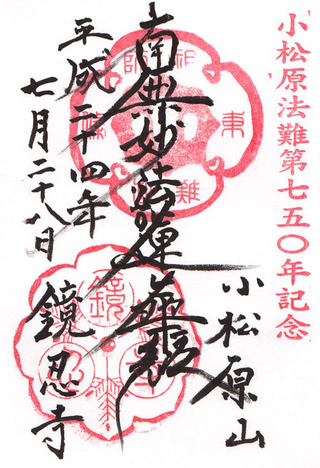 小松原法難第七五〇年記念
小松原山
南無妙法蓮華経
平成二十四年
七月二十八日
鏡忍寺